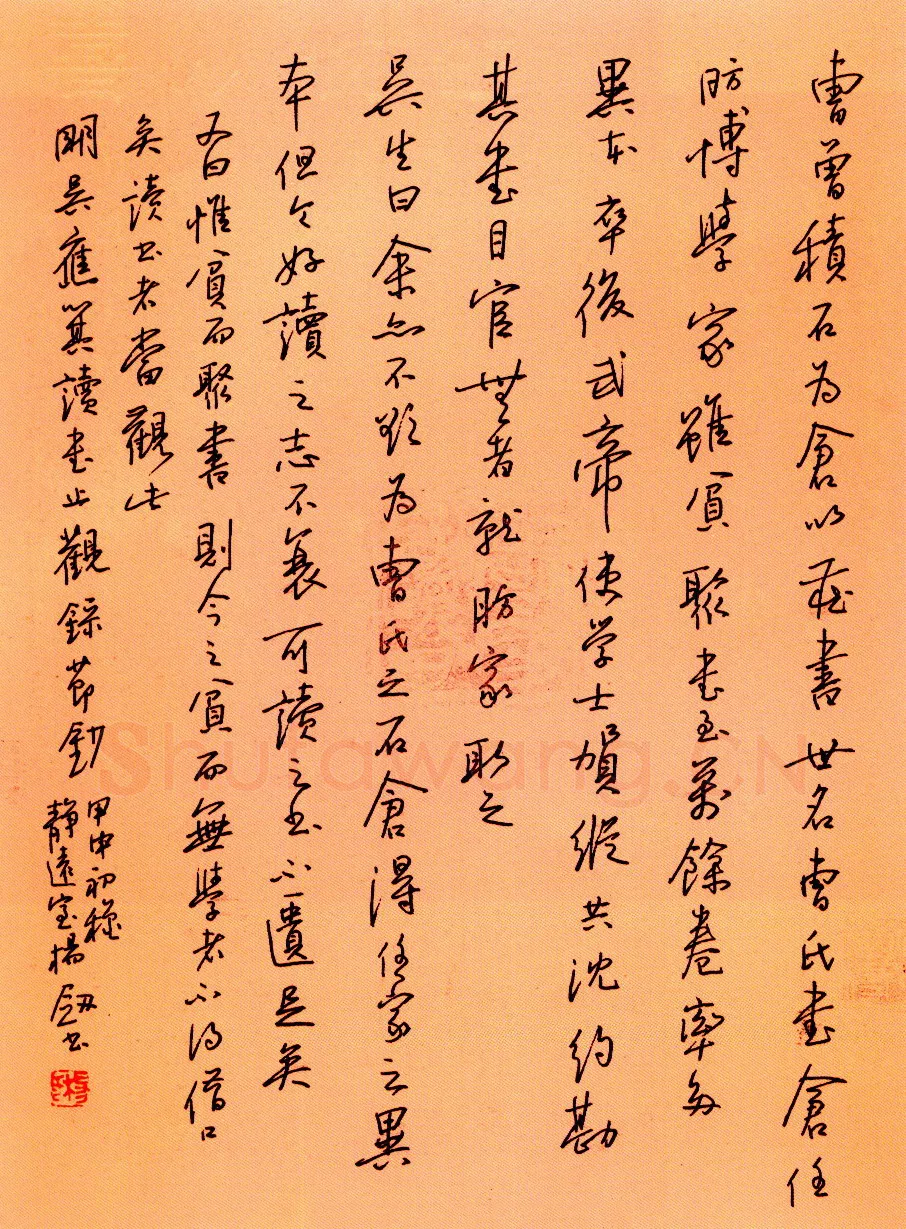 曹曾積石為倉以藏書世名曹氏書倉任
昉博學家雖貧聚書至萬餘卷率多
異本卒後武帝使学士賀縱共沈約勘
其書目官無者就昉家取之
吳生曰余亦不欲為曹氏之石倉得任家之異
本但令好讀之志不衰可讀之书不遺足矣
又曰惟貧而聚書則今之貧而無學者不得借口
矣讀书者當觀此
明吳應箕讀書止觀錄節鈔
甲申初秋
靜遠室楊劒书
Shufawang.CN